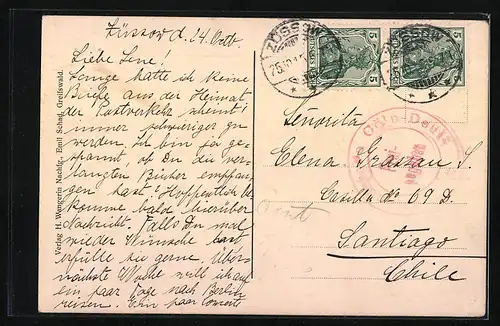 Züssow d. 24. Octb.
Liebe Lene!
Lange hatte ich keine
Briefe aus der Heimat
der Postverkehr scheint
immer schwieriger zu
werden, ich bin so ge-
spannt, ob Du die ver-
langten Bücher empfan-
gen hast. Hoffentlich be-
komme bald hierüber
Nachricht. Falls Du mal
wieder Wünsche hast
erfülle sie gerne. Über-
nächste Woche will ich auf
ein paar Tage nach Berlin
reisen. Ein paar Concerte
Verlag H. Wengerin Nachflg., Emil Schad, Greifswald.
ZÜSSOW
ZÜSSOW
5 5
5
Cöln-Deutz
Frei-
gegeben
Señorita
Elena Grassau S.
Casilla de 69 D.
Santiago
Chile